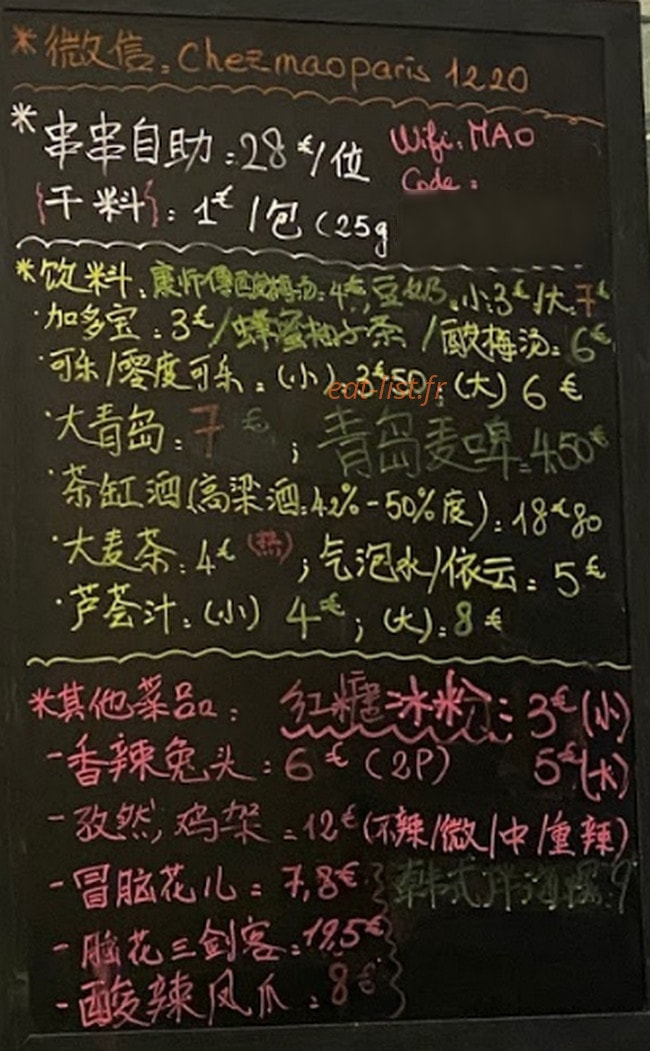 *微信:Chezmaoparis 1220
*串串自助:28€/位
Wifi:MAO
Code:
{干料}:1€/包(25g
*饮料:康师傅酸梅汤:4€,豆奶:小:3€/大:7€
·加多宝:3€/蜂蜜柚子茶/酸梅汤:6€
·可乐/零度可乐:(小):3€50;(大)6€
eat-list.fr
·大青岛:7€;青岛麦啤:4,50€
·茶缸酒(高梁酒:42%-50%度):18€80
·大麦茶:4€(热);气泡水/依云:5€
·芦荟汁:(小)4€;(大):8€
*其他菜品:红糖冰粉:3€(小)
-香辣兔头:6€(2P) 5€(大)
-孜然,鸡架:12€(不辣/微/中/重辣)
-冒脑花儿:7,8€ 韩式拌海螺:9
-脑花三剑客:19,5€
-酸辣凤爪:8€